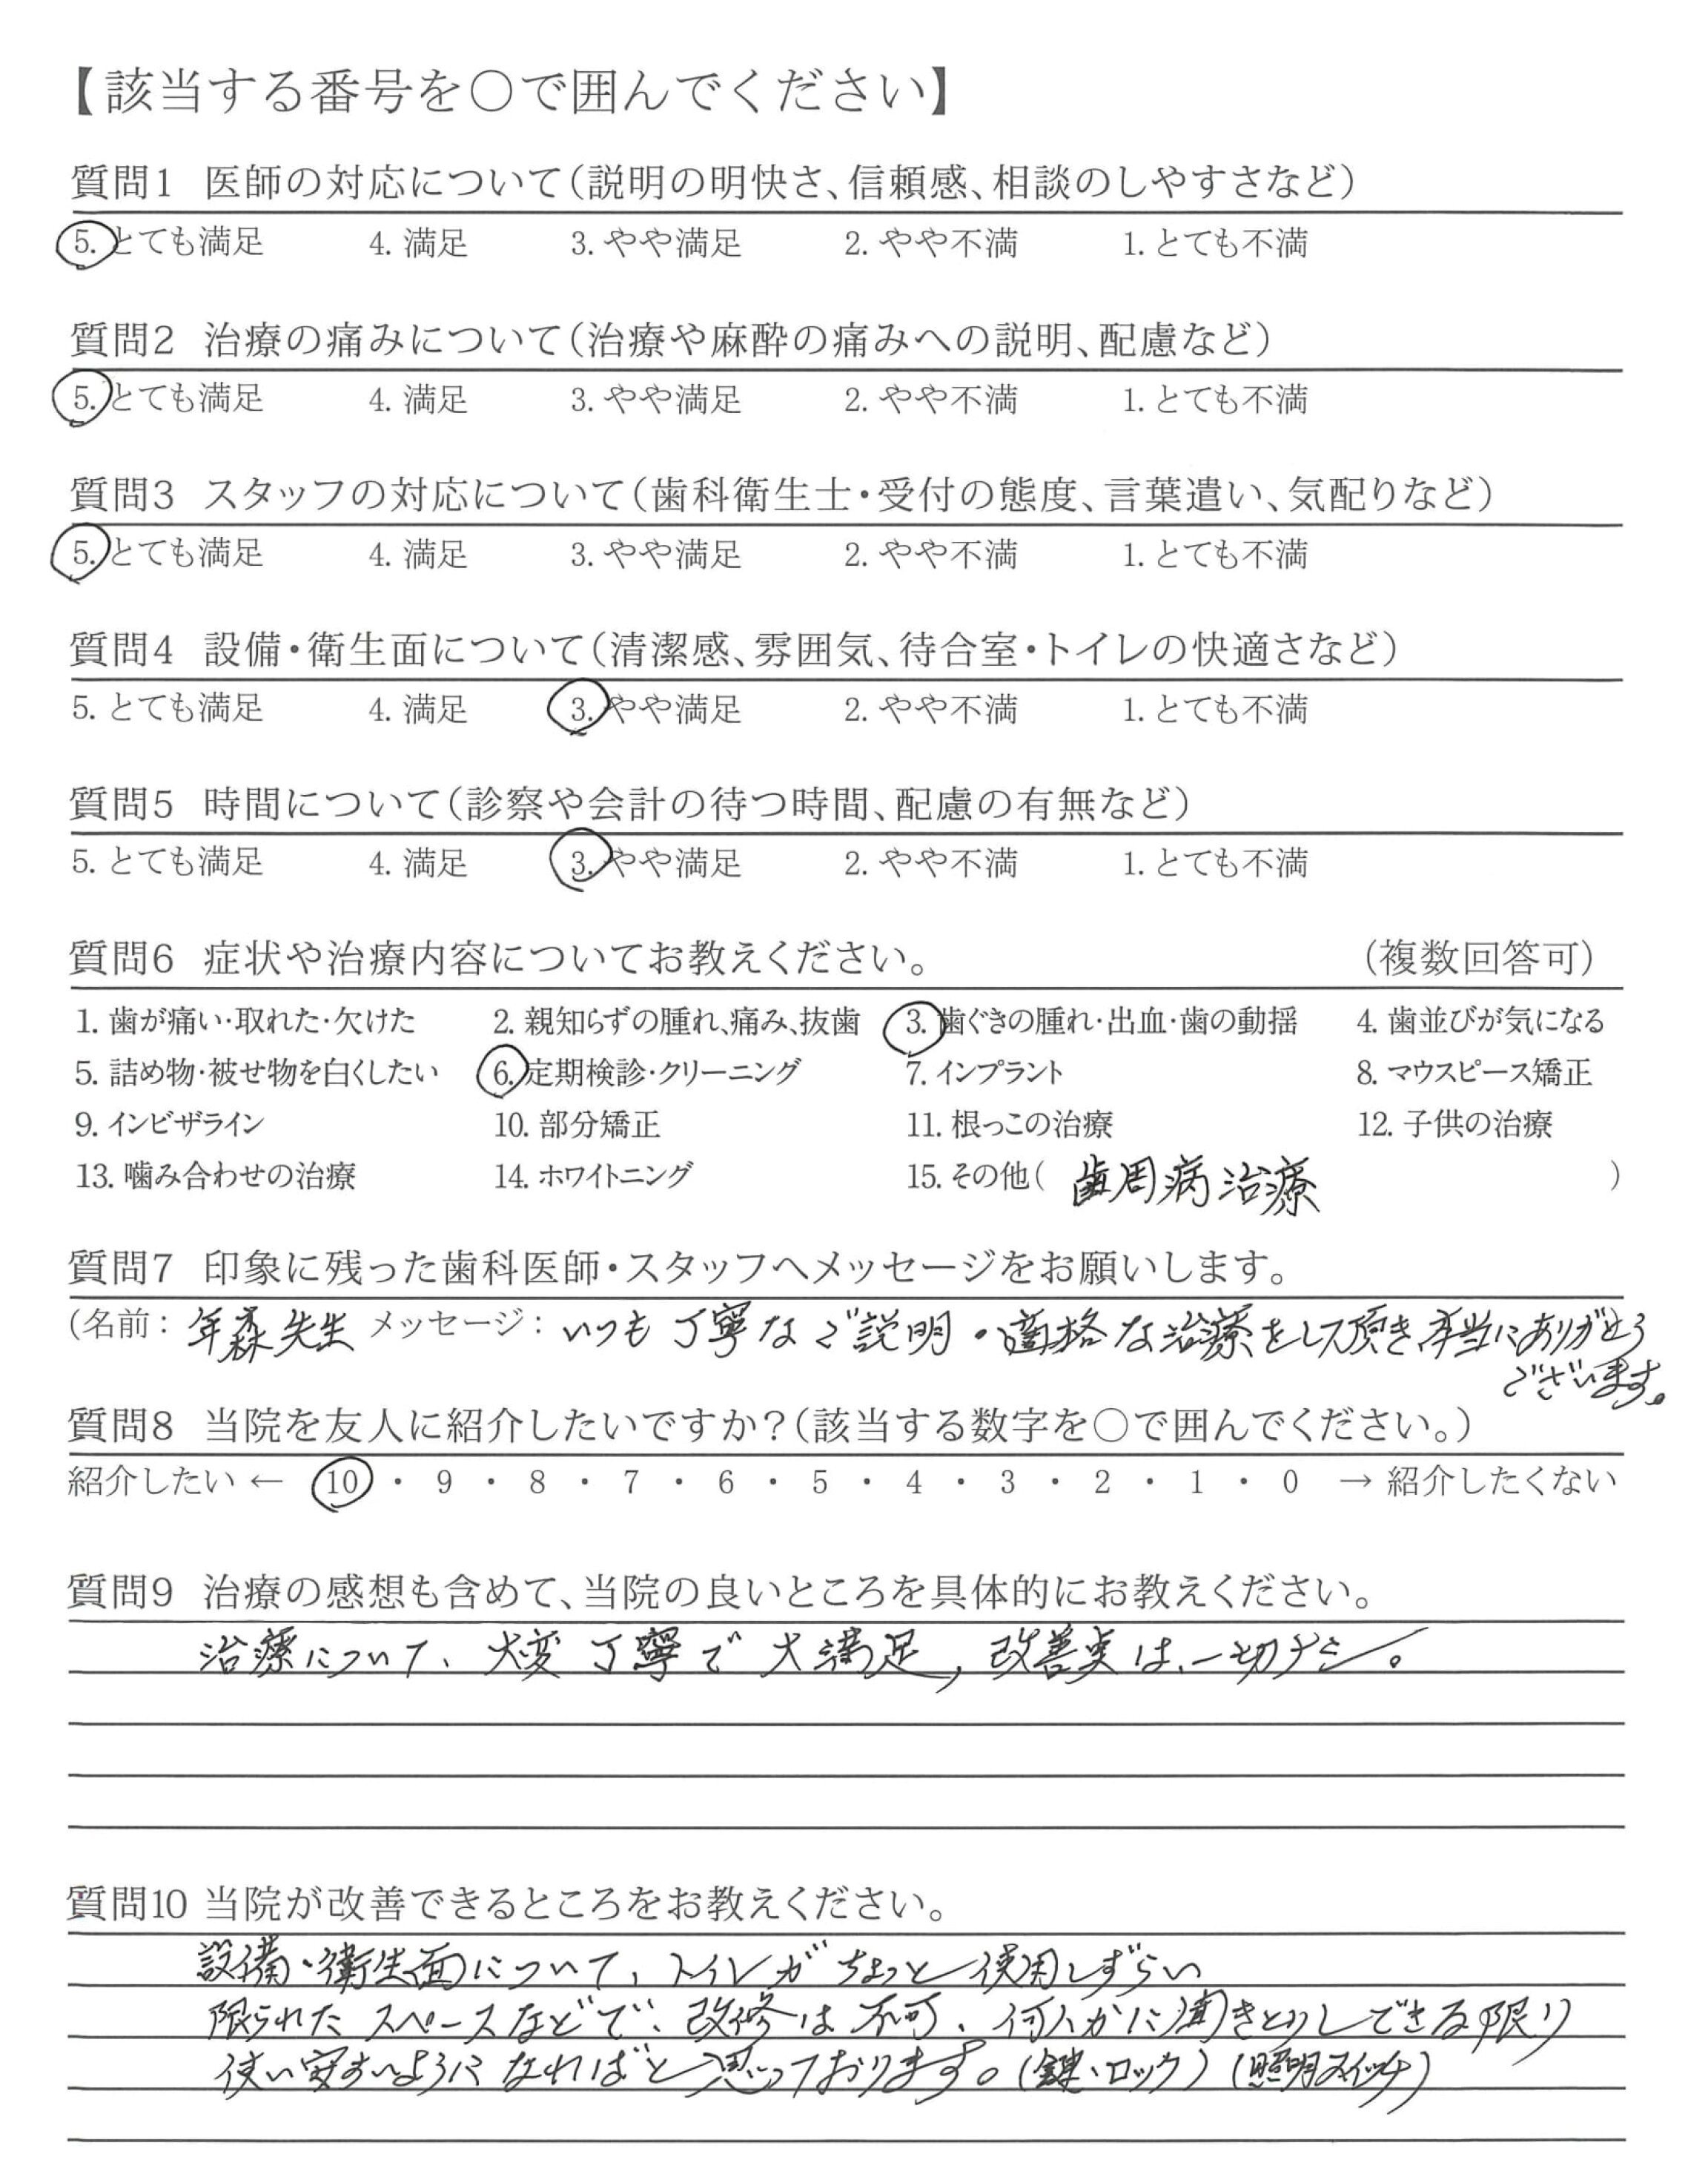 【該当する番号を○で囲んでください】
質問1 医師の対応について(説明の明快さ、信頼感、相談のしやすさなど)
5. とても満足 4. 満足 3. やや満足 2. やや不満 1. とても不満
質問2 治療の痛みについて(治療や麻酔の痛みへの説明、配慮など)
5. とても満足 4. 満足 3. やや満足 2. やや不満 1. とても不満
質問3 スタッフの対応について(歯科衛生士・受付の態度、言葉遣い、気配りなど)
5. とても満足 4. 満足 3. やや満足 2. やや不満 1. とても不満
質問4 設備・衛生面について(清潔感、雰囲気、待合室・トイレの快適さなど)
5. とても満足 4. 満足 3. やや満足 2. やや不満 1. とても不満
質問5 時間について(診察や会計の待つ時間、配慮の有無など)
5. とても満足 4. 満足 3. やや満足 2. やや不満 1. とても不満
質問6 症状や治療内容についてお教えください。 (複数回答可)
1. 歯が痛い・取れた・欠けた 2. 親知らずの腫れ、痛み、抜歯 3. 歯ぐきの腫れ・出血・歯の動揺 4. 歯並びが気になる
5. 詰め物・被せ物を白くしたい 6. 定期検診・クリーニング 7. インプラント 8. マウスピース矯正
9. インビザライン 10. 部分矯正 11. 根っこの治療 12. 子供の治療
13. 噛み合わせの治療 14. ホワイトニング 15. その他( 歯周病治療 )
質問7 印象に残った歯科医師・スタッフへメッセージをお願いします。
(名前: 年森先生 メッセージ: いつも丁寧なご説明・適格な治療をして頂き本当にありがとう
ございます。
質問8 当院を友人に紹介したいですか?(該当する数字を○で囲んでください。)
紹介したい ← 10 ・ 9 ・ 8 ・ 7 ・ 6 ・ 5 ・ 4 ・ 3 ・ 2 ・ 1 ・ 0 → 紹介したくない
質問9 治療の感想も含めて、当院の良いところを具体的にお教えください。
治療について、大変丁寧で大満足, 改善点は、一切ナシ。
質問10 当院が改善できるところをお教えください。
設備・衛生面について、トイレがちょっと使用しずらい
限られたスペースなどで、改修は不可、何人かに聞きとりしできる限り
使い安すいようになればと思っております。(鍵・ロック)(照明スイッチ)